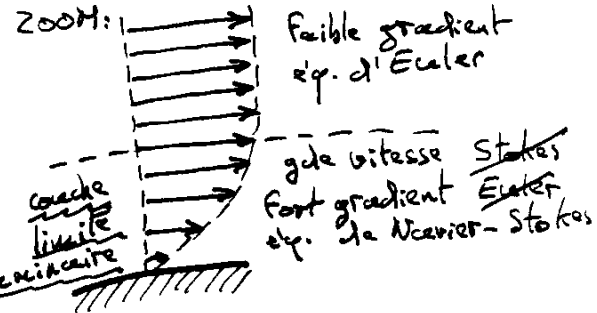 ZOOM:
faible gradient
éq. d'Euler
gde vitesse Stokes
fort gradient Euler
éq. de Navier-Stokes
couche
limite
laminaire